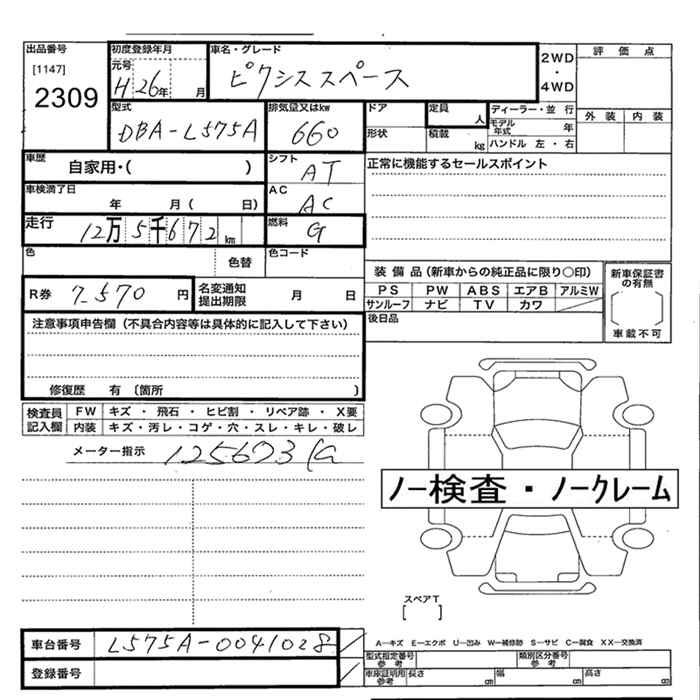 出品番号
[1147]
2309
初度登録年月
元号
H 26年 月
車名・グレード
ピクシススペース
2WD
・
4WD
評価点
外装 内装
型式
DBA-L575A
排気量又はkw
660
ドア
形状
定員
人
積載
kg
ディーラー・並行
モデル年式 年
ハンドル 左・右
車歴
自家用・( )
シフト
AT
正常に機能するセールスポイント
車検満了日
年 月( 日)
AC
AC
走行
12万5千672km
燃料
G
色
色替
色コード
装備品(新車からの純正品に限り○印)
PS PW ABS エアB アルミW
サンルーフ ナビ TV カワ
新車保証書の有無
車載不可
R券 7,570円
名変通知
提出期限
月 日
後日品
注意事項申告欄(不具合内容等は具体的に記入して下さい)
修復歴 有〔箇所 〕
検査員記入欄
FW キズ・飛石・ヒビ割・リペア跡・X要
内装 キズ・汚レ・コゲ・穴・スレ・キレ・破レ
メーター指示
125673
ノー検査・ノークレーム
スペアT
[ ]
車台番号 L575A-0041028
登録番号
A―キズ E―エクボ U―凹み W―補修跡 S―サビ C―腐食 XX―交換済
型式指定番号
参考
類別区分番号
参考
車庫証明用
参考
長さ cm 幅 cm 高さ cm